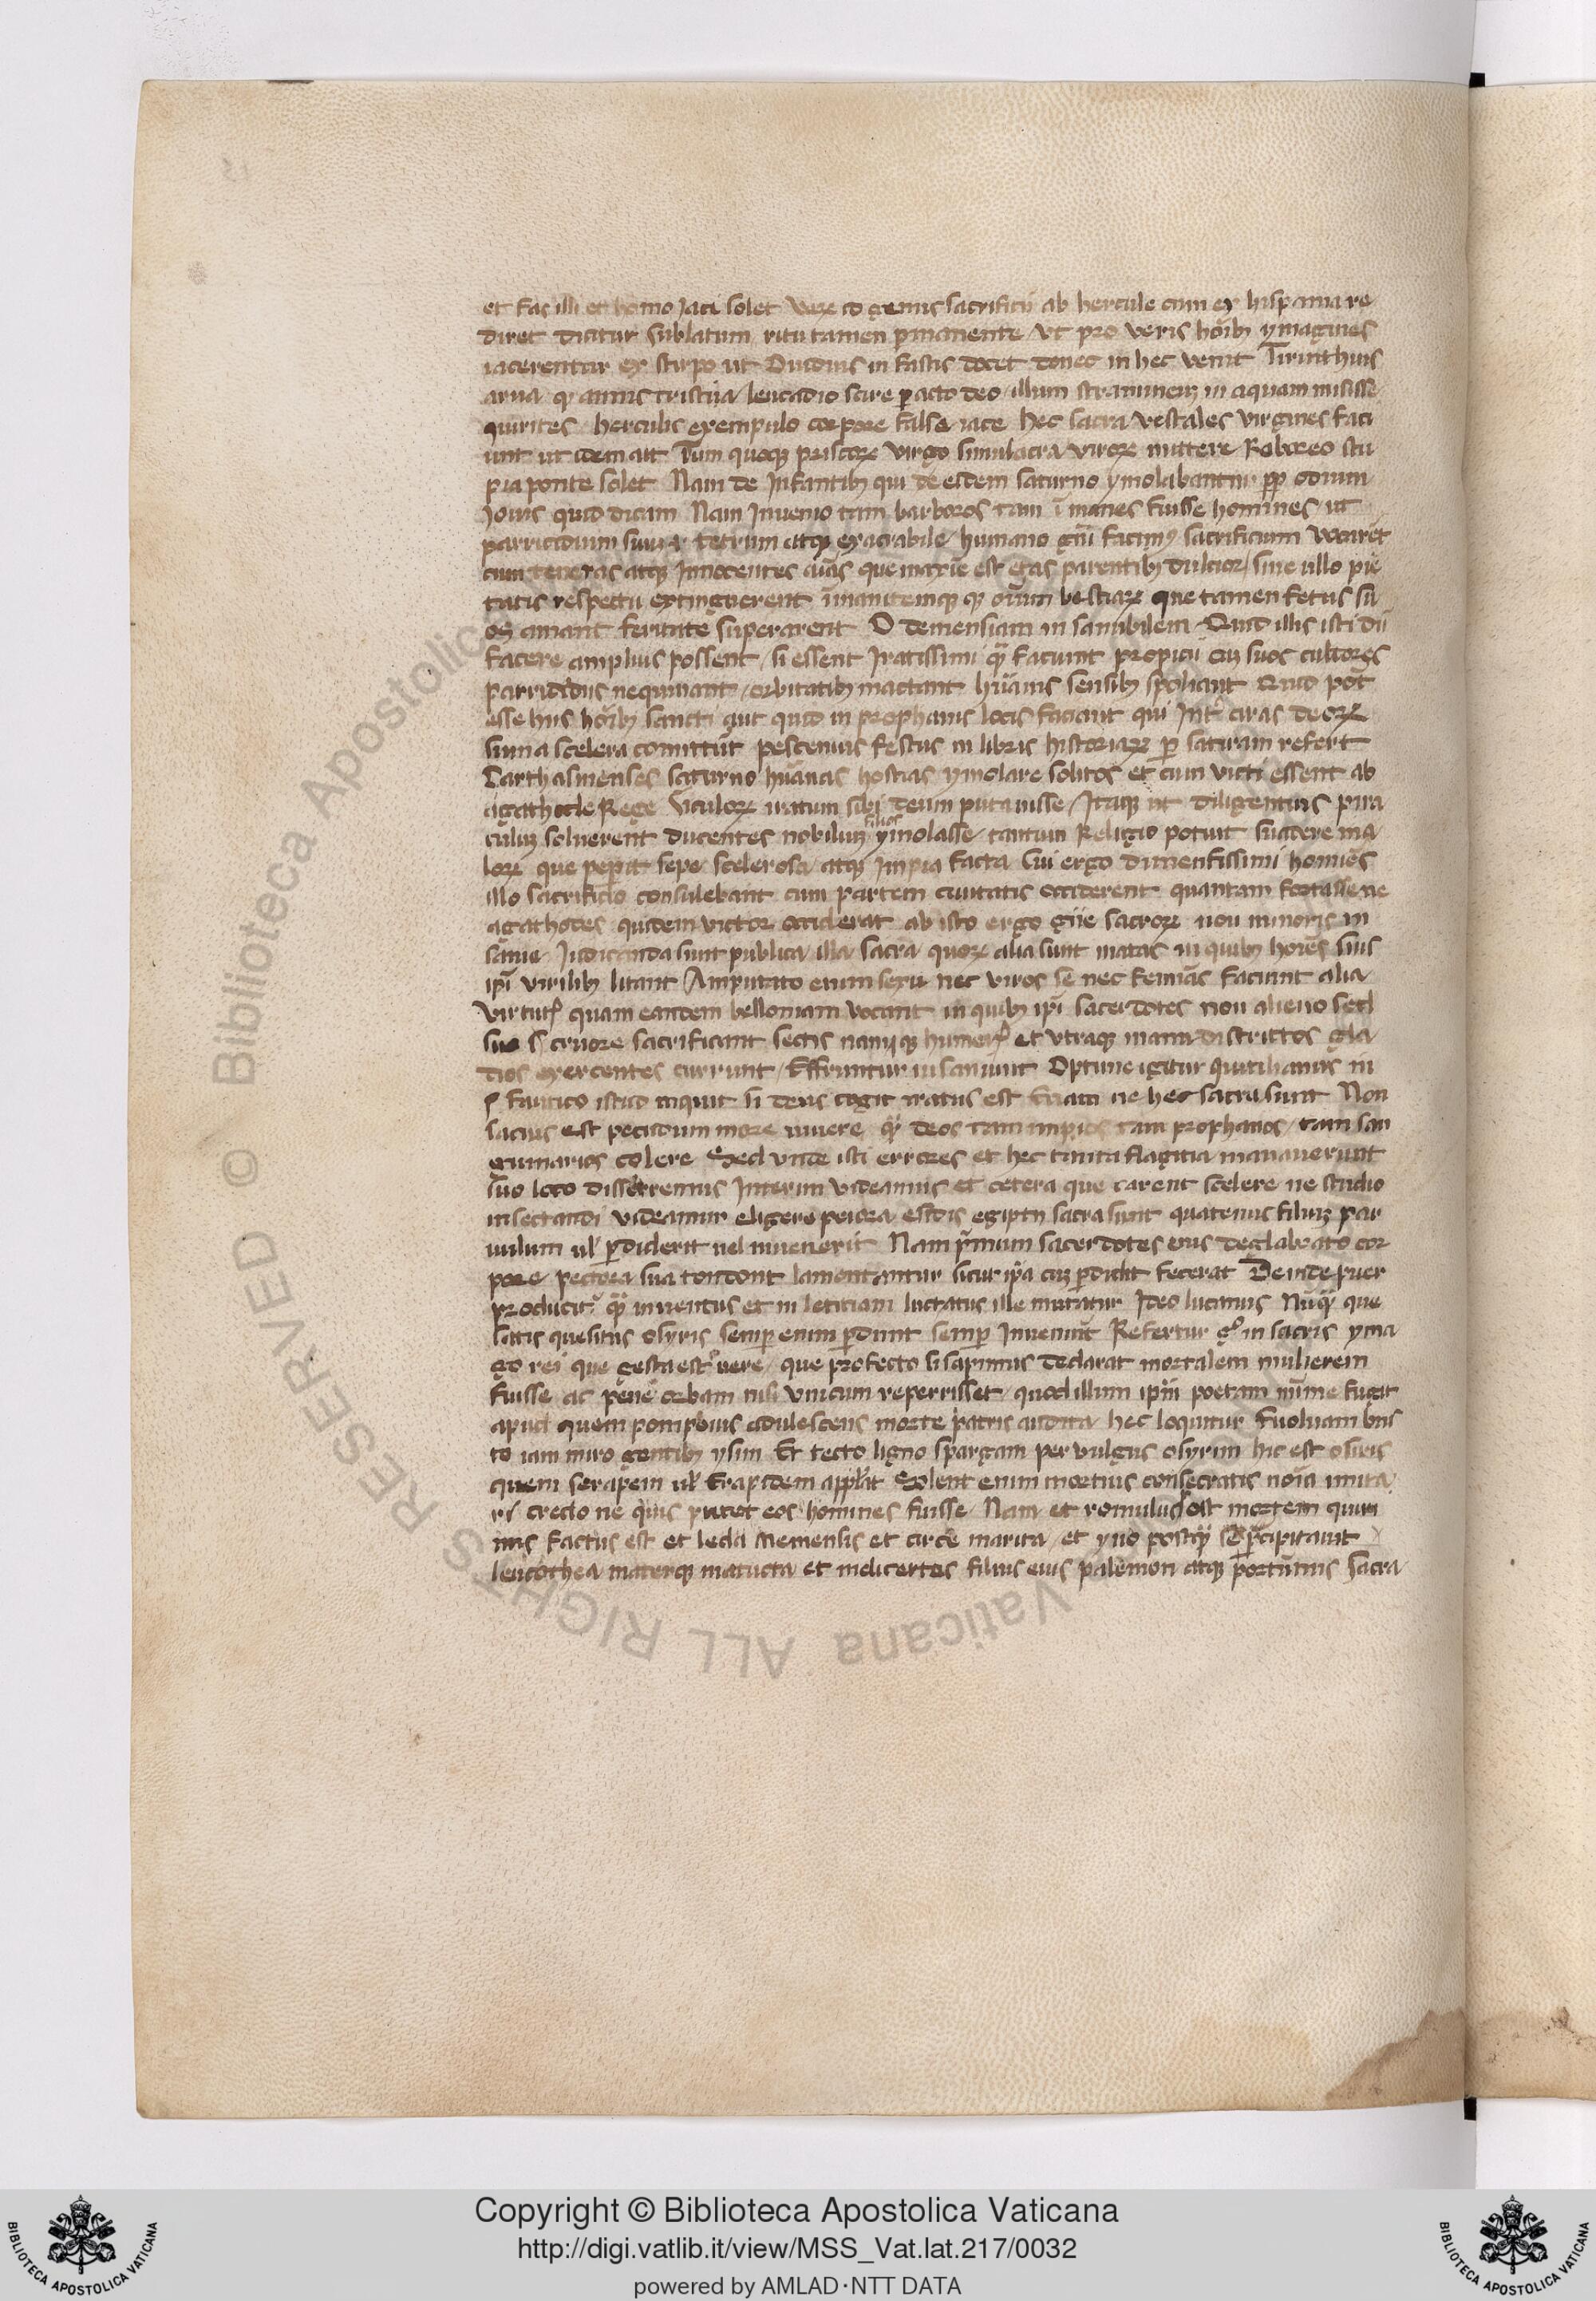 et fas illi et homo iaci solet Veꝝ id genus sacrificii ab hercule cum ex hispania re
diret dicitur sublatum ritu tamen ꝑmanente Vt pro veris hoı̄bꝫ ymagines
iacerentur ex stirpo ut Ouidius in fastis docet donec in hec venit Tirinthius
arua qꝫ annis tristia leucadio scire ꝑacto deo illum stramineꝫ in aquam misisse
quirites herculis exempulo corpore falsa iace hec sacra vestales virgines faci
unt ut idem ait Tum quoqꝫ priscoꝝ virgo simulacra viroꝝ mittere Roboreo scir
pia ponte solet Nam de Infantibꝫ qui de eidem saturno ymolabantur ꝓp odium
Jouis quid dicam Nam Inuenio tam barbaros tam īmanes fuisse homines ut
parricidium suuꝫ tetrum atqꝫ exacrabile humano gn̄i facinꝯ sacrificium vocaret
cum teneras atqꝫ Innocentes aīas que maxīe est etas parentibꝫ dulcior sine ullo pie
tatis respectu extinguerent īmanitemqꝫ qꝫ oīum bestiaꝝ que tamen fetus su
os amant feritate superarent O demensiam in sanabilem Quid illis isti dii
facere amplius possent si essent Iratissimi qꝫ̄ faciunt propicii cuꝫ suos cultores
parricidiis nequinant orbitatibꝫ mactant hūanis sensibꝫ spoliant Quid pot̄
esse hiis hoı̄bꝫ sancti aut quid in prophanis locis faciant qui Int̄ aras deoꝝ
suma scelera comittūt pescenius festus in libris historiaꝝ ꝑ satiram refert
Carthasinenses saturno hūanas hostias ymolare solitos et cum victi essent ab
agathocle Rege siculoꝝ iratum sibi deum putauisse Itaqꝫ ut diligentius piia
culuꝫ soluerent ducentos nobiliuꝫ filios ymolasse tantum Religio potuit suadere ma
loꝝ que peꝑit sepe scelerosa atqꝫ Impia facta Cui ergo dimentissimi homīes
illo sacrificio consulebant cum partem ciuitatis occiderent quantam fortasse ne
agathodes quidem victor occiderat ab isto ergo gn̄e sacroꝝ non minoris in
sanie Iudicanda sunt publica illa sacra quoꝝ alia sunt matas in quibꝫ hoīes suis
ipī virilibꝫ litant Amputato enim sexu nec viros se nec femīas faciunt alia
virtutꝭ quam eandem bellonam vocant in quibꝫ ipī sacerdotes non alieno sed
suo cruore sacrificant sectis namqꝫ humeꝭ et vtraqꝫ manu districtos gla
dios exercentes currunt Effruntur insaniunt Optime igitur quitilianus in
fanatico istud inquit si deus cogit iratus est Etiam ne hec sacra sunt Non
sacius est pecudum more uiuere qꝫ̄ deos tam impios tam prophanos tam san
guinarios colere Sed vnde isti errores et hec tanta flagitia manauerunt
suo loco disseremus Interim videamus et cetera que carent scelere ne studio
insectandi videamur eligere peiora esidis egiptii sacra sunt quatenus filiuꝫ par
uulum ul̄ ꝑdiderit uel inuenerit Nam p̄mum sacerdotes eius deglabrato cor
pore pectora sua tondunt lamentantur sicut ip̄a cuꝫ ꝑdidit fecerat Deinde puer
producit̄ qꝫ̄ inuentus et in letitiam luctatus ille mutatur Ideo lucanus Nūqꝫ̄ que
satis quesitus osyris semꝑ enim ꝑdunt semꝑ Inueniūt Refertur gͦ in sacris yma
go rei que gesta est uere que profecto si sapimus declarat mortalem mulierem
fuisse ac pene orbam nisi vnicum reperrisset quod illum ip̄m poetam mīme fugit
apud quem pompeius adulescens morte patris audita hec loquitur Euoluam bus
to iam miro gentibꝫ ysim Et tecto ligno spargam per vulgus osyrim hic est osiris
quem serapem ul̄ serapidem appl̄at Solent enim mortuis consecratis noīa muta
ri credo ne quis putet eos homines fuisse Nam et romulus post mortem quiri
nus factus est et leda Nemensis et circe marica et yno postqꝫ̄ se p̄cipitauit
leucothea materqꝫ matucta et melicertes filius eius palemon atqꝫ portūnus Sacra
Copyright © Biblioteca Apostolica Vaticana
http://digi.vatlib.it/view/MSS_Vat.lat.217/0032
powered by AMLAD·NTT DATA
BIBLIOTECA APOSTOLICA VATICANA
BIBLIOTECA APOSTOLICA VATICANA
© Biblioteca Apostolica Vaticana ALL RIGHTS RESERVED